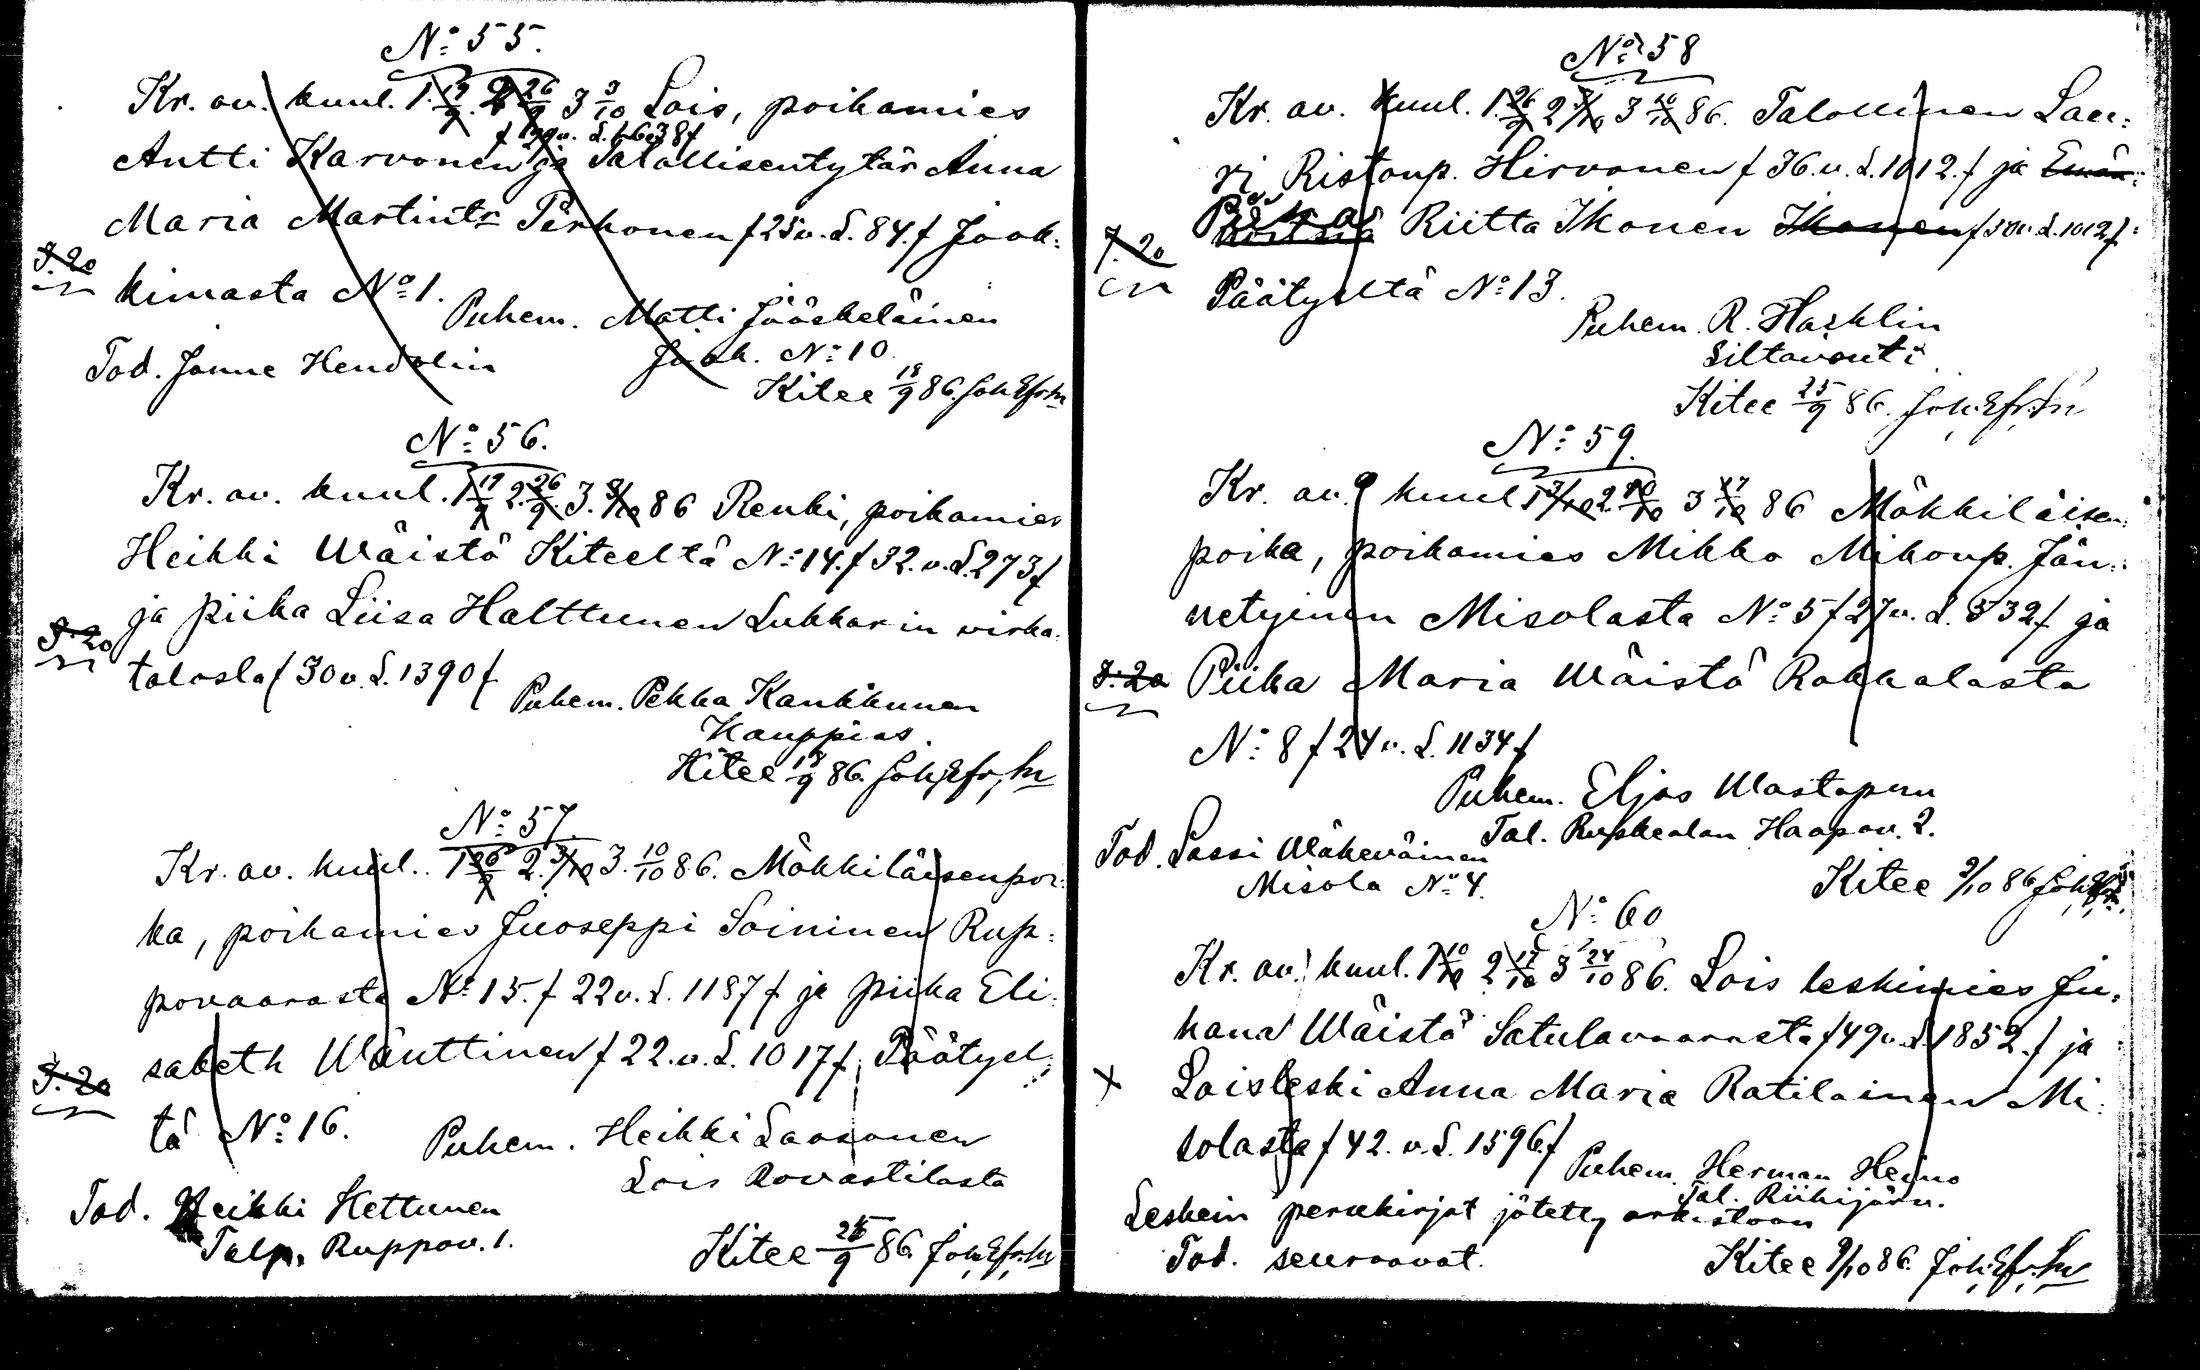 No: 55.
Kr. av. kuul. 1. 19/9. 2 26/9 3 3/10 Lois, poikamies
f 29 v. S. 1638 f
Antti Karvonen ja Talollisentytär Anna
Maria Martintr Pirhonen f 25 v. S. 84. f Jaak:
J. 20
kimasta No: 1.
Puhem. Matti Jääskeläinen
Jaak. No: 10.
Tod. Janne Hendolin
Kitee 18/9 86. Joh. Efr. Sn
No: 56.
Kr. av. kuul. 1 19/9 2. 26/9. 3. 3/10 86 Renki, poikamies
Heikki Wäistö Kiteeltä No: 14. f 32. v. S. 273 f
ja piika Liisa Halttunen Lukkarin virka:
J. 20
talosta f 30 v. S. 1390 f
Puhem. Pekka Kankkunen
Kauppias.
Kitee 18/9 86. Joh. Efr. Sn
No: 57.
Kr. av. kuul. 1 26/9 2. 3/10 3. 10/10 86. Mökkiläisenpoi:
ka, poikamies Juoseppi Soininen Rup:
povaarasta No: 15. f 22 v. S. 1187 f ja piika Eli:
sabeth Wänttinen f 22. v. S. 1017 f. Päätyel:
J. 20
tä No: 16.
Puhem. Heikki Laasonen
Lois Rovastilasta
Tod. Heikki Kettunen
Talp. Ruppov. 1.
Kitee 25/9 86. Joh. Efr. Sn
No: 58
Kr. av. kuul. 1. 26/9 2 3/10 3 10/10 86. Talollinen Lau:
ri Ristonp. Hirvonen f 36. v. S. 1012. f ja Emän:
Riitta Ikonen Ikonen f 50 v. S. 1012 f:
J. 20
Päätyeltä No: 13.
Puhem. R. Hasklin
Siltavouti
Kitee 25/9 86. Joh. Efr. Sn
No: 59.
Kr. av. kuul 1 3/10 2. 10/10 3 17/10 86 Mökkiläisen:
poika, poikamies Mikko Mikonp. Jän:
netyinen Misolasta No: 5 f 27 v. S. 532 f ja
J. 20
Piika Maria Wäistö Rokkalasta
No: 8 f 24 v. S. 1134 f
Puhem. Eljas Wastapuu
Tal. Ruskealan Haapav. 2.
Tod. Lassi Wäkeväinen
Misola No: 4.
Kitee 2/10 86. Joh. Efr. Sn.
No: 60
Kr. av. kuul. 1 10/10 2 17/10 3 24/10 86. Lois leskimies Ju:
hana Wäistö Satulavaarasta f 49 v. S 1852. f ja
x
Loisleski Anna Maria Ratilainen Mi:
solasta f 42. v. S. 1596 f
Puhem. Herman Heino
Tal. Riihijärv.
Leskein perukirjat jätetty arkistoon
Tod. seuraavat.
Kitee 9/10 86. Joh. Efr. Sn